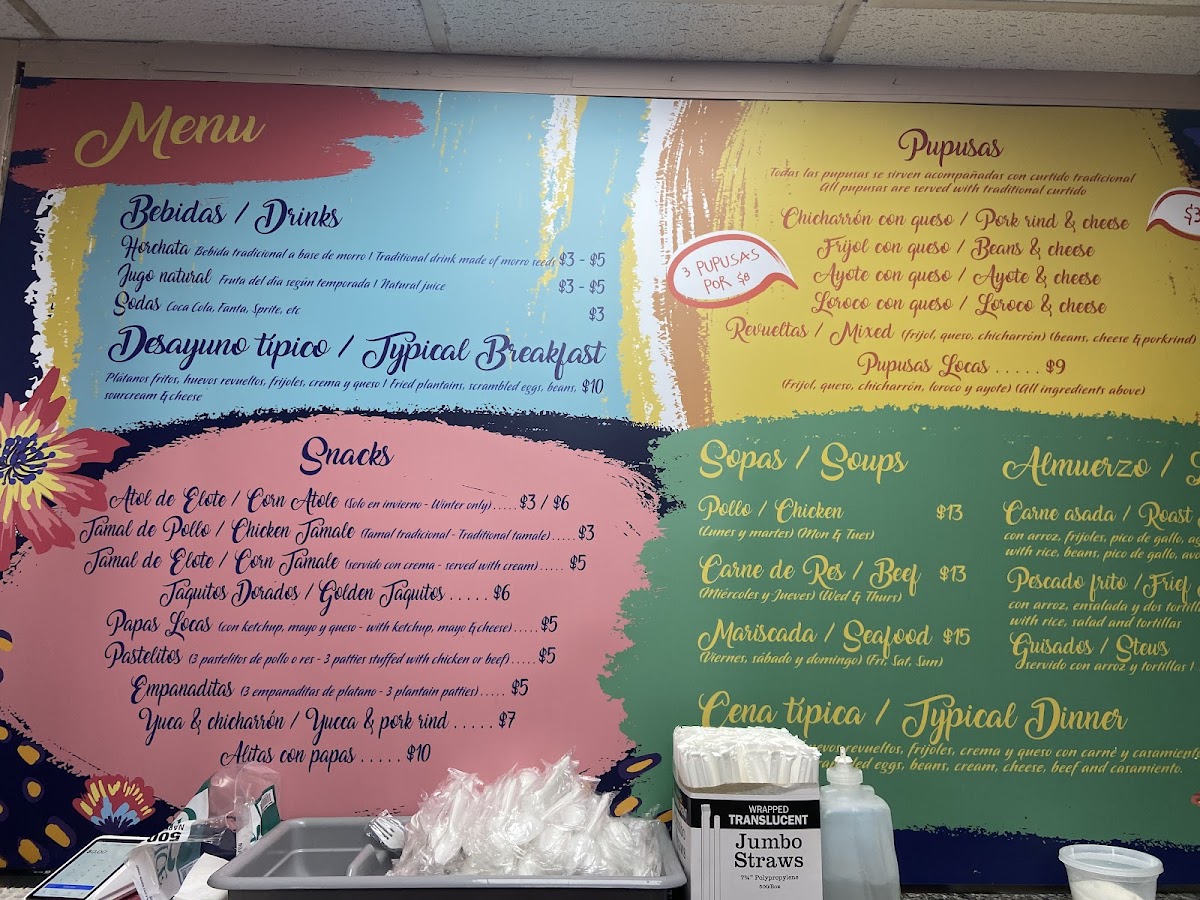 Menu
Bebidas / Drinks
Horchata Bebida tradicional a base de morro | Traditional drink made of morro seeds $3 - $5
Jugo natural Fruta del día según temporada | Natural juice $3 - $5
Sodas Coca Cola, Fanta, Sprite, etc $3
Desayuno típico / Typical Breakfast
Plátanos fritos, huevos revueltos, frijoles, crema y queso | fried plantains, scrambled eggs, beans, $10
sourcream & cheese
Snacks
Atol de Elote / Corn Atole (Solo en invierno - Winter only)..... $3 / $6
Tamal de Pollo / Chicken Tamale (Tamal tradicional - Traditional tamale)..... $3
Tamal de Elote / Corn Tamale (servido con crema - served with cream)..... $5
Taquitos Dorados / Golden Taquitos ..... $6
Papas Locas (con ketchup, mayo y queso - with ketchup, mayo & cheese)..... $5
Pastelitos (3 pastelitos de pollo o res - 3 patties stuffed with chicken or beef)..... $5
Empanaditas (3 empanaditas de platano - 3 plantain patties)..... $5
Yuca & chicharrón / Yucca & pork rind ..... $7
Alitas con papas ..... $10
Pupusas
Todas las pupusas se sirven acompañadas con curtido tradicional
All pupusas are served with traditional curtido
3 PUPUSAS
POR $8
Chicharrón con queso / Pork rind & cheese
Frijol con queso / Beans & cheese
Ayote con queso / Ayote & cheese
Loroco con queso / Loroco & cheese
Revueltas / Mixed (frijol, queso, chicharrón) (beans, cheese & porkrind)
Pupusas Locas ..... $9
(Frijol, queso, chicharrón, loroco y ayote) (All ingredients above)
Sopas / Soups
Pollo / Chicken $13
(Lunes y martes) (Mon & Tues)
Carne de Res / Beef $13
(Miércoles y Jueves) (Wed & Thurs)
Mariscada / Seafood $15
(Viernes, sábado y domingo) (Fri, Sat, Sun)
Almuerzo /
Carne asada / Roast
con arroz, frijoles, pico de gallo,
with rice, beans, pico de gallo,
Pescado frito / Fried
con arroz, ensalada y dos
with rice, salad and tortillas
Guisados / Stews
servido con arroz y tortillas |
Cena típica / Typical Dinner
revueltos, frijoles, crema y queso con carne y casamiento
eggs, beans, cream, cheese, beef and casamiento.
WRAPPED
TRANSLUCENT
Jumbo
Straws
7¾" Polypropylene
500/Box